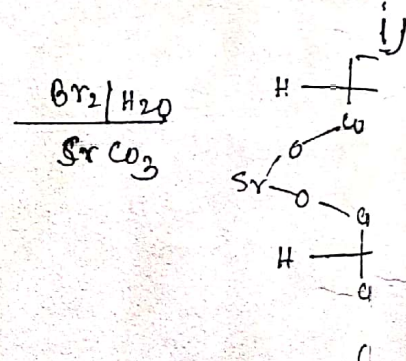 Br2/H2O
SrCO3
H
CO
O
Sr
O
H